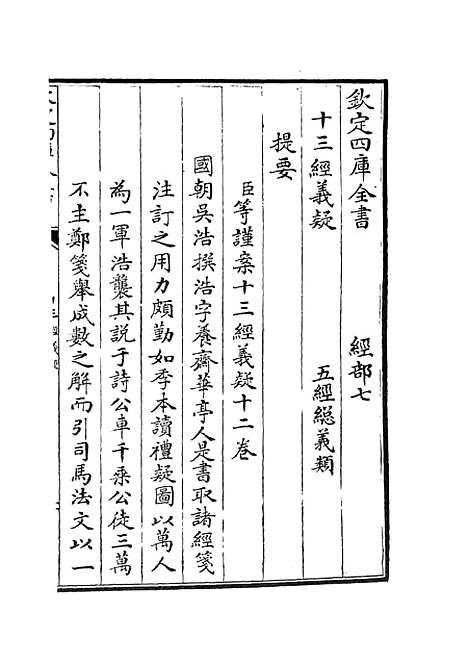 欽定四庫全書　　　　經部七
十三經義疑　　　　五經總義類
提要
臣等謹案十三經義疑十二卷
國朝吳浩撰浩字養齋華亭人是書取諸經箋
注訂之用力頗勤如季本讀禮疑圖以萬人
為一軍浩襲其説于詩公車千乘公徒三萬
不主鄭箋舉成數之解而引司馬法文以一